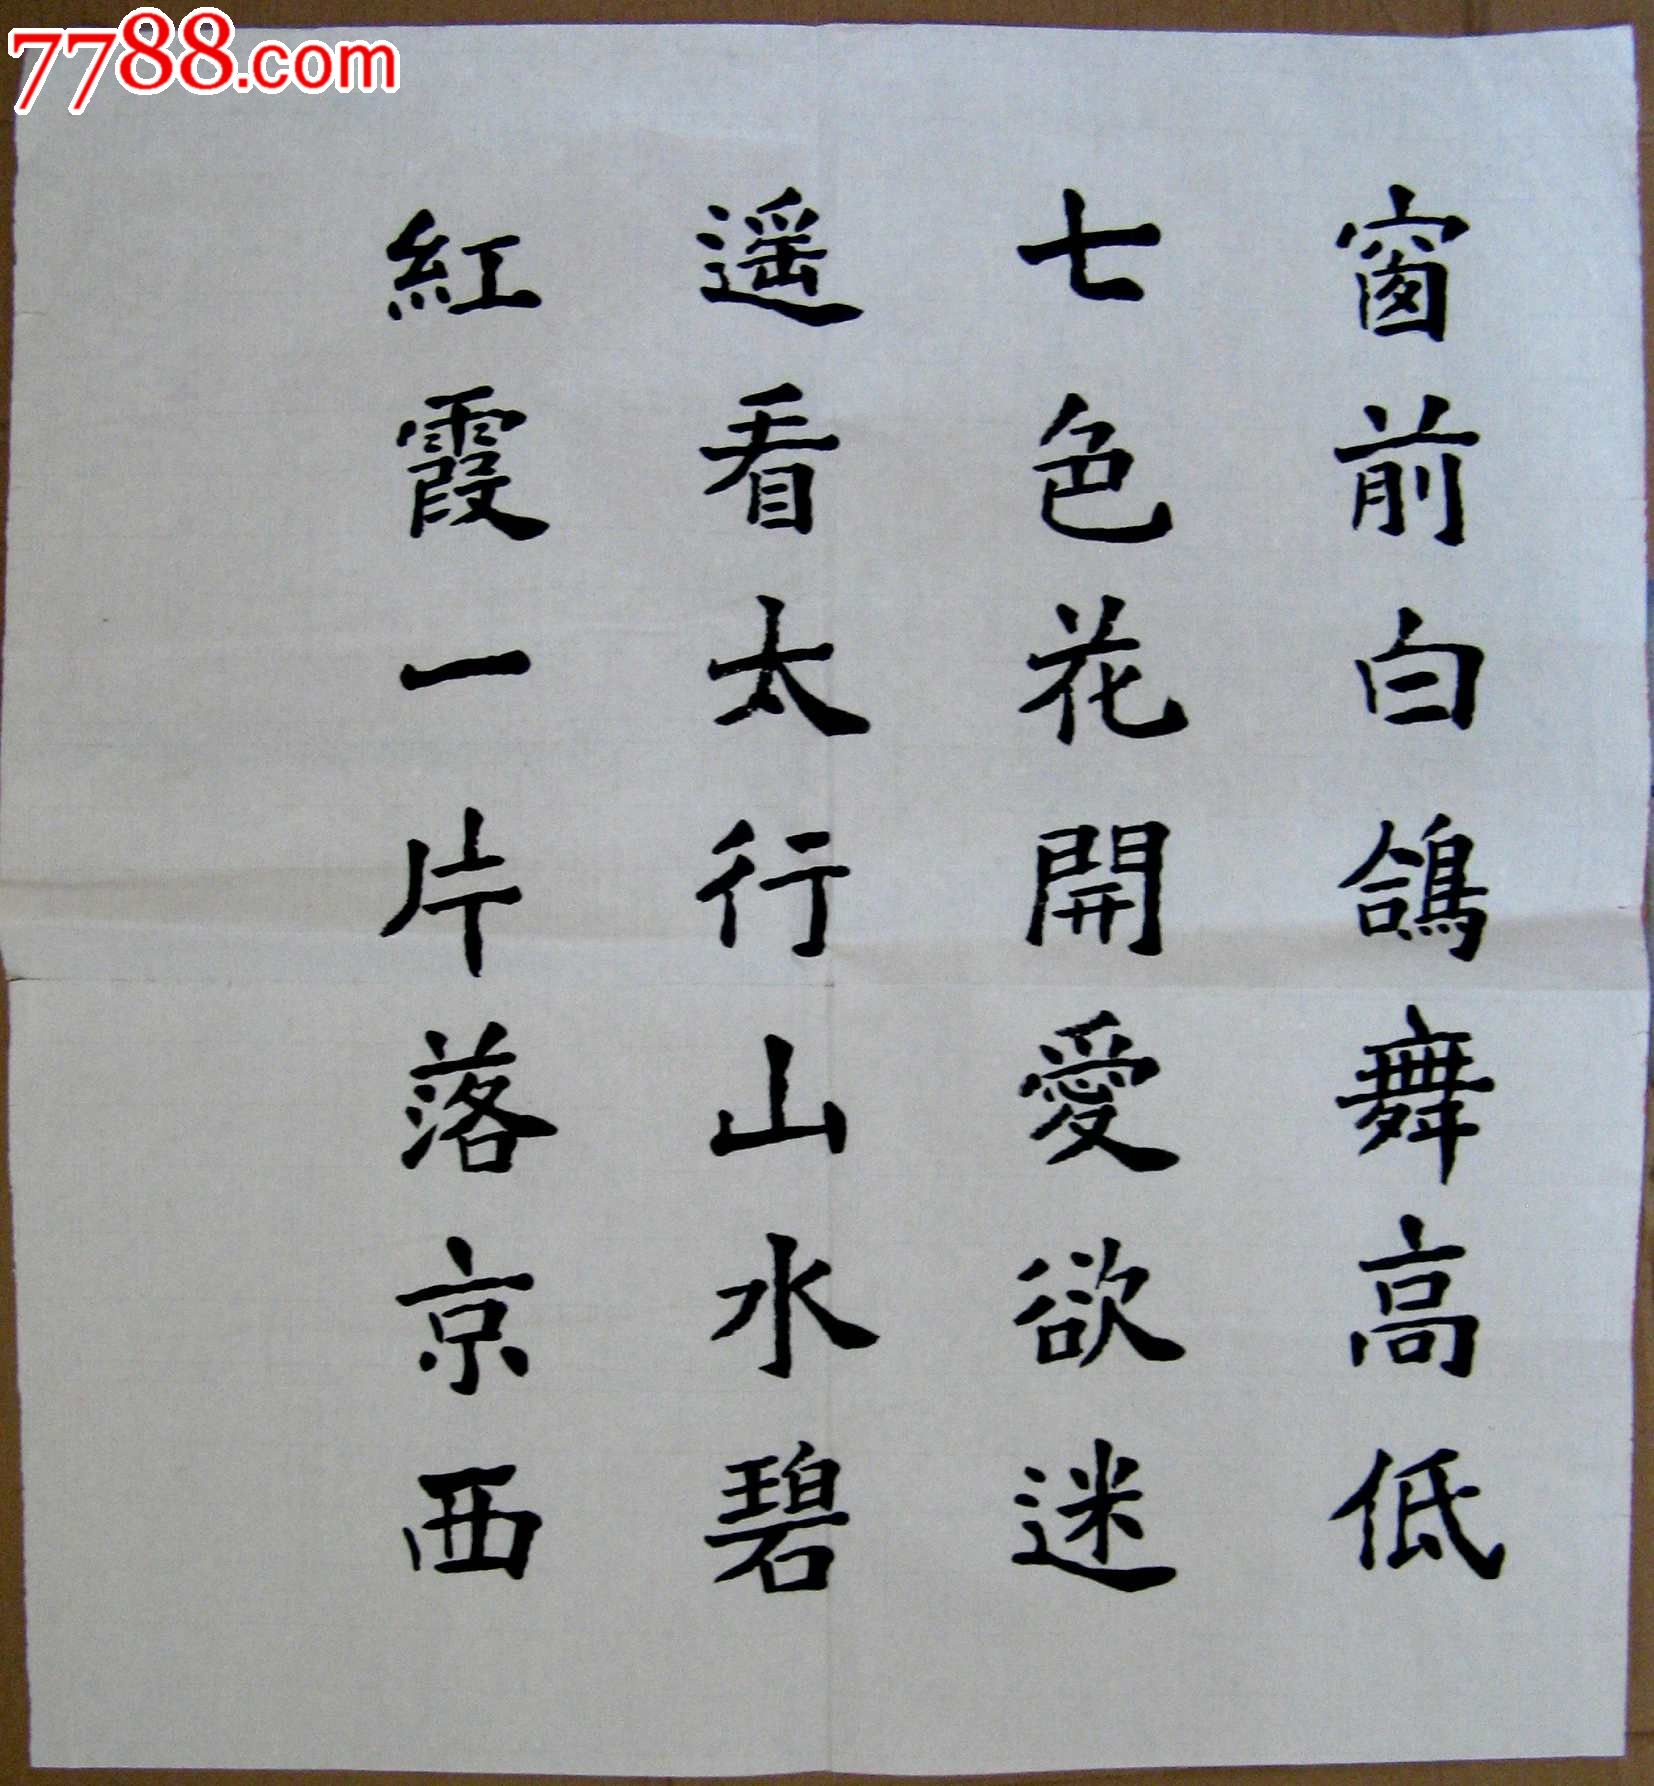 7788.com
窗前白鴿舞高低
七色花開愛欲迷
遥看太行山水碧
紅霞一片落京西